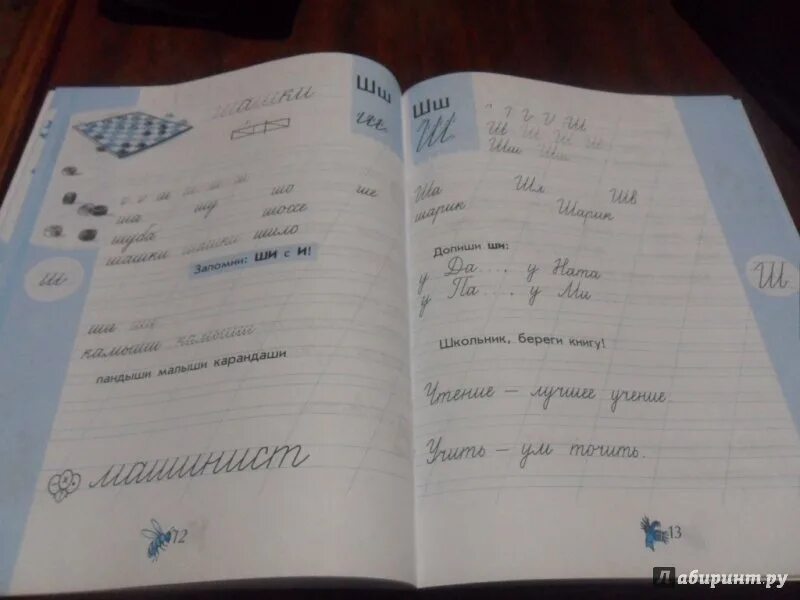 шашки
Шш
ш
ш ш ш ш шо ше
ша шу шоссе
шуба
шашки шашки шило
Запомни: ШИ с И!
ш
ши ши
камыши камыши
ландыши малыши карандаши
машинист
12
Шш
Ш
Ш
Ш Ш Ш Ш
Шш Шш
Ша Шл Шв
шарик Шарик
Допиши ши:
у Да..., у Ната
у Па..., у Ми
Ш
Школьник, береги книгу!
Чтение – лучшее учение.
Учить – ум точить.
13
Лабиринт.ру